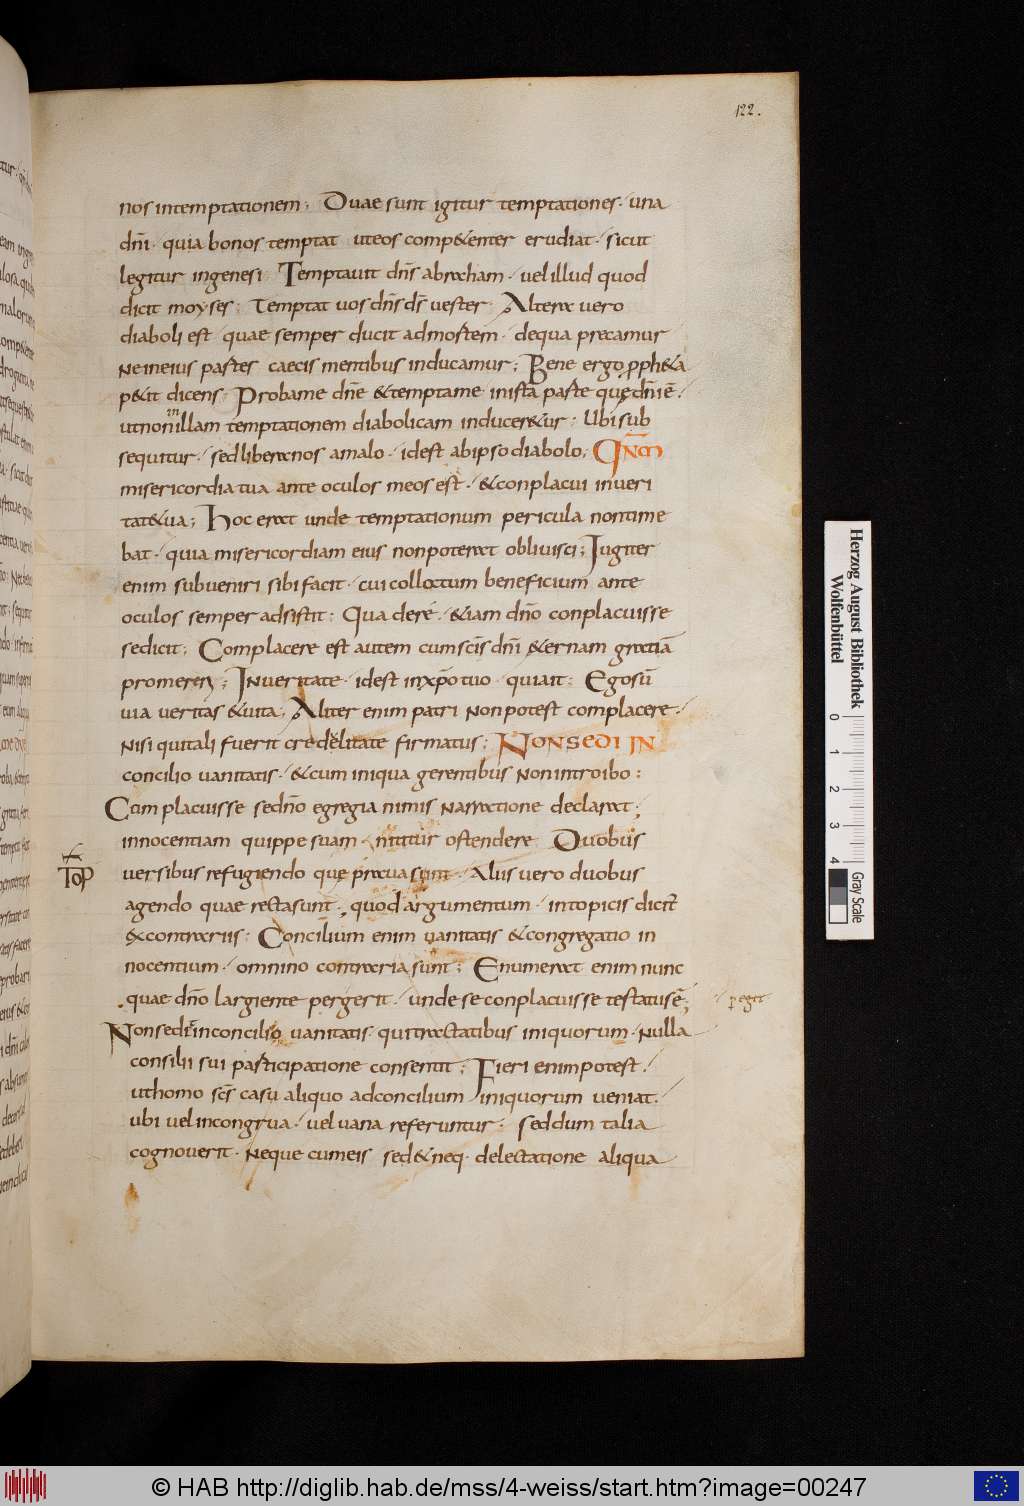 122.
nos intemptationem; Duae sunt igitur temptationes. una
dn̄i. quia bonos temptat uteos comp&enter erudiat. sicut
legitur ingenesi. Temptauit dn̄s abraham. uelillud quod
dicit moyses; Temptat uos dn̄s ds̄ uester. Altera uero
diaboli est. quae semper ducit admortem. dequa precamur
Neineius partes caecis mentibus inducamur; Bene ergo pph&a
p&it dicens; Probame dn̄e &temptame inista parte quę dn̄i ē.
utnoninillam temptationem diabolicam inducer&ur; Ubisub
sequitur. sedliberanos amalo. idest abipsodiabolo; QN̄M
misericordia tua ante oculos meos est. &conplacui inueri
tat&ua; Hoc erat unde temptationum pericula nontime
bat. quia misericordiam eius nonpoterat obliuisci; Iugiter
enim subueniri sibi facit. cui collatum beneficium ante
oculos semper adsistit: Qua derē. &iam dn̄o conplacuisse
sedicit; Complacere est autem cumsc̄is dn̄i &ernam gratiā
promereri; INueritate. idest inxp̄o tuo. quiait: Egosū
uia ueritas &uita; Aliter enim patri Nonpotest complacere.
Nisi quitali fuerit credelitate firmatus; NONSEDI IN
concilio uanitatis. &cum iniqua gerentibus Nonintroibo:
Cum placuisse sedn̄o egregia nimis Narratione declarat;
innocentiam quippe suam. nititur ostendere. Duobus
uersibus refugiendo quę praua sunt. Aliis uero duobus
TOP
agendo quae recta sunt. quod argumentum. intopicis dicit̄
excontrariis: Concilium enim uanitatis &congregatio in
nocentium. omnino contraria sunt; Enumerat enim nunc
quae dn̄o largiente pergerit. unde se conplacuisse testatus ē;
p egit
Nonsedit inconcilio uanitatis. quitractatibus iniquorum. Nulla
consilii sui participatione consentit; Fieri enimpotest.
uthomo sc̄s casu aliquo adconcilium iniquorum ueniat.
ubi uel incongrua. uel uana referuntur. Seddum talia
cognouerit. Neque cumeis sed&neq. delectatione aliqua
Herzog August Bibliothek
Wolfenbüttel
0 1 2 3 4
Gray Scale
© HAB http://diglib.hab.de/mss/4-weiss/start.htm?image=00247